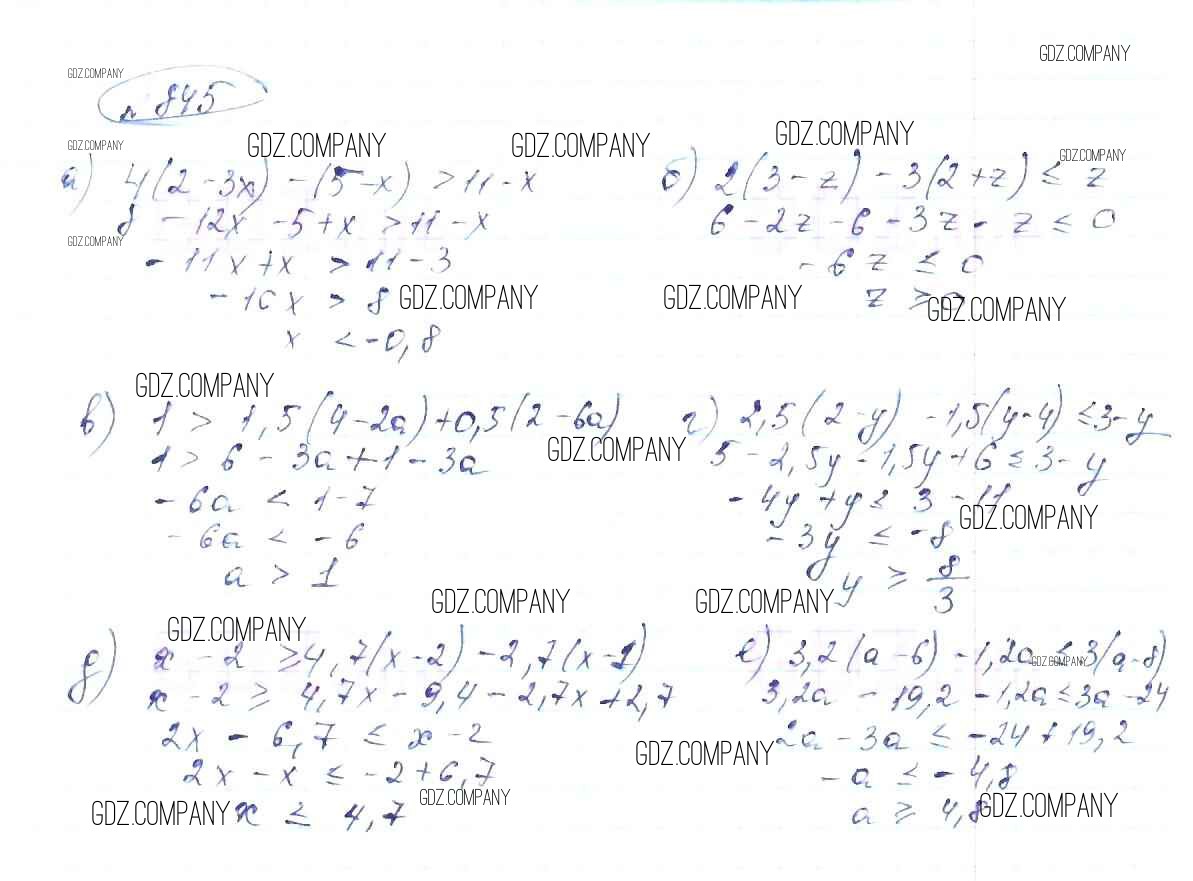 GDZ.COMPANY
GDZ.COMPANY
№ 845
GDZ.COMPANY GDZ.COMPANY GDZ.COMPANY GDZ.COMPANY GDZ.COMPANY
а) 4(2-3x) -(5-x) >11-x
8 -12x -5+x >11-x
GDZ.COMPANY
-11x+x > 11-3
-10x > 8 GDZ.COMPANY
x < -0,8
б) 2(3-z) -3(2+z) ≤ z
6-2z-6-3z-z ≤ 0
-6z ≤ 0
GDZ.COMPANY z ≥ GDZ.COMPANY
GDZ.COMPANY
в) 1 > 1,5(4-2a)+0,5(2-6a)
1 > 6-3a+1-3a GDZ.COMPANY
-6a < 1-7
-6a < -6
a > 1
г) 2,5(2-y) -1,5(y-4) ≤3-y
5-2,5y-1,5y+6 ≤ 3-y
-4y+y ≤ 3-11
GDZ.COMPANY
-3y ≤ -8
GDZ.COMPANY GDZ.COMPANY y ≥ 8/3
GDZ.COMPANY
д) x-2 ≥4,7(x-2) -2,7(x-1)
x-2 ≥ 4,7x-9,4-2,7x+2,7
2x-6,7 ≤ x-2
2x-x ≤ -2+6,7
GDZ.COMPANY x ≤ 4,7 GDZ.COMPANY
е) 3,2(a-6) -1,2a ≤3(a-8)
GDZ.COMPANY
3,2a -19,2 -1,2a≤3a-24
GDZ.COMPANY 2a-3a ≤ -24+19,2
-a ≤ -4,8
a ≥ 4,8 GDZ.COMPANY